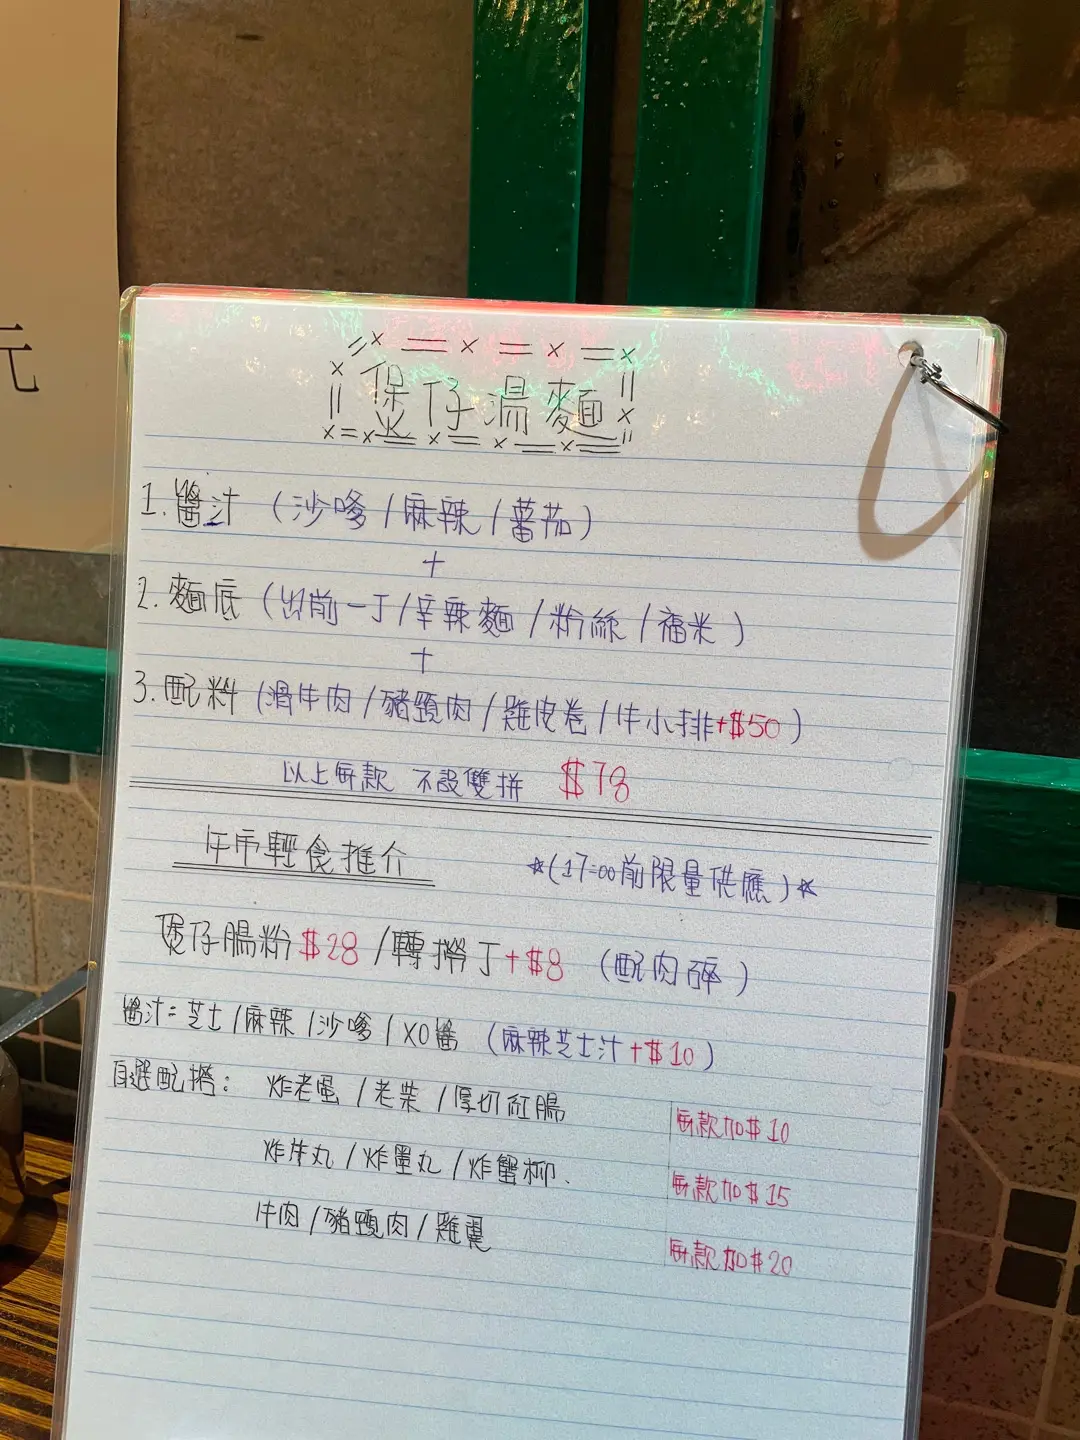 元
煲仔湯麵
1. 醬汁 (沙嗲 / 麻辣 / 蕃茄)
+
2. 麵底 (出前一丁 / 辛辣麵 / 粉絲 / 福米)
+
3. 配料 (滑牛肉 / 豬頸肉 / 雞皮卷 / 牛小排+$50)
以上每款 不設雙拼 $78
午市輕食推介 ☆(17:00前限量供應)☆
煲仔腸粉$28 / 轉撈丁+$8 (配肉碎)
醬汁: 芝士 / 麻辣 / 沙嗲 / XO醬 (麻辣芝士汁+$10)
自選配搭: 炸老蛋 / 老柴 / 厚切紅腸 每款加$10
炸牛丸 / 炸墨丸 / 炸蟹柳. 每款加$15
牛肉 / 豬頸肉 / 雞翼 每款加$20